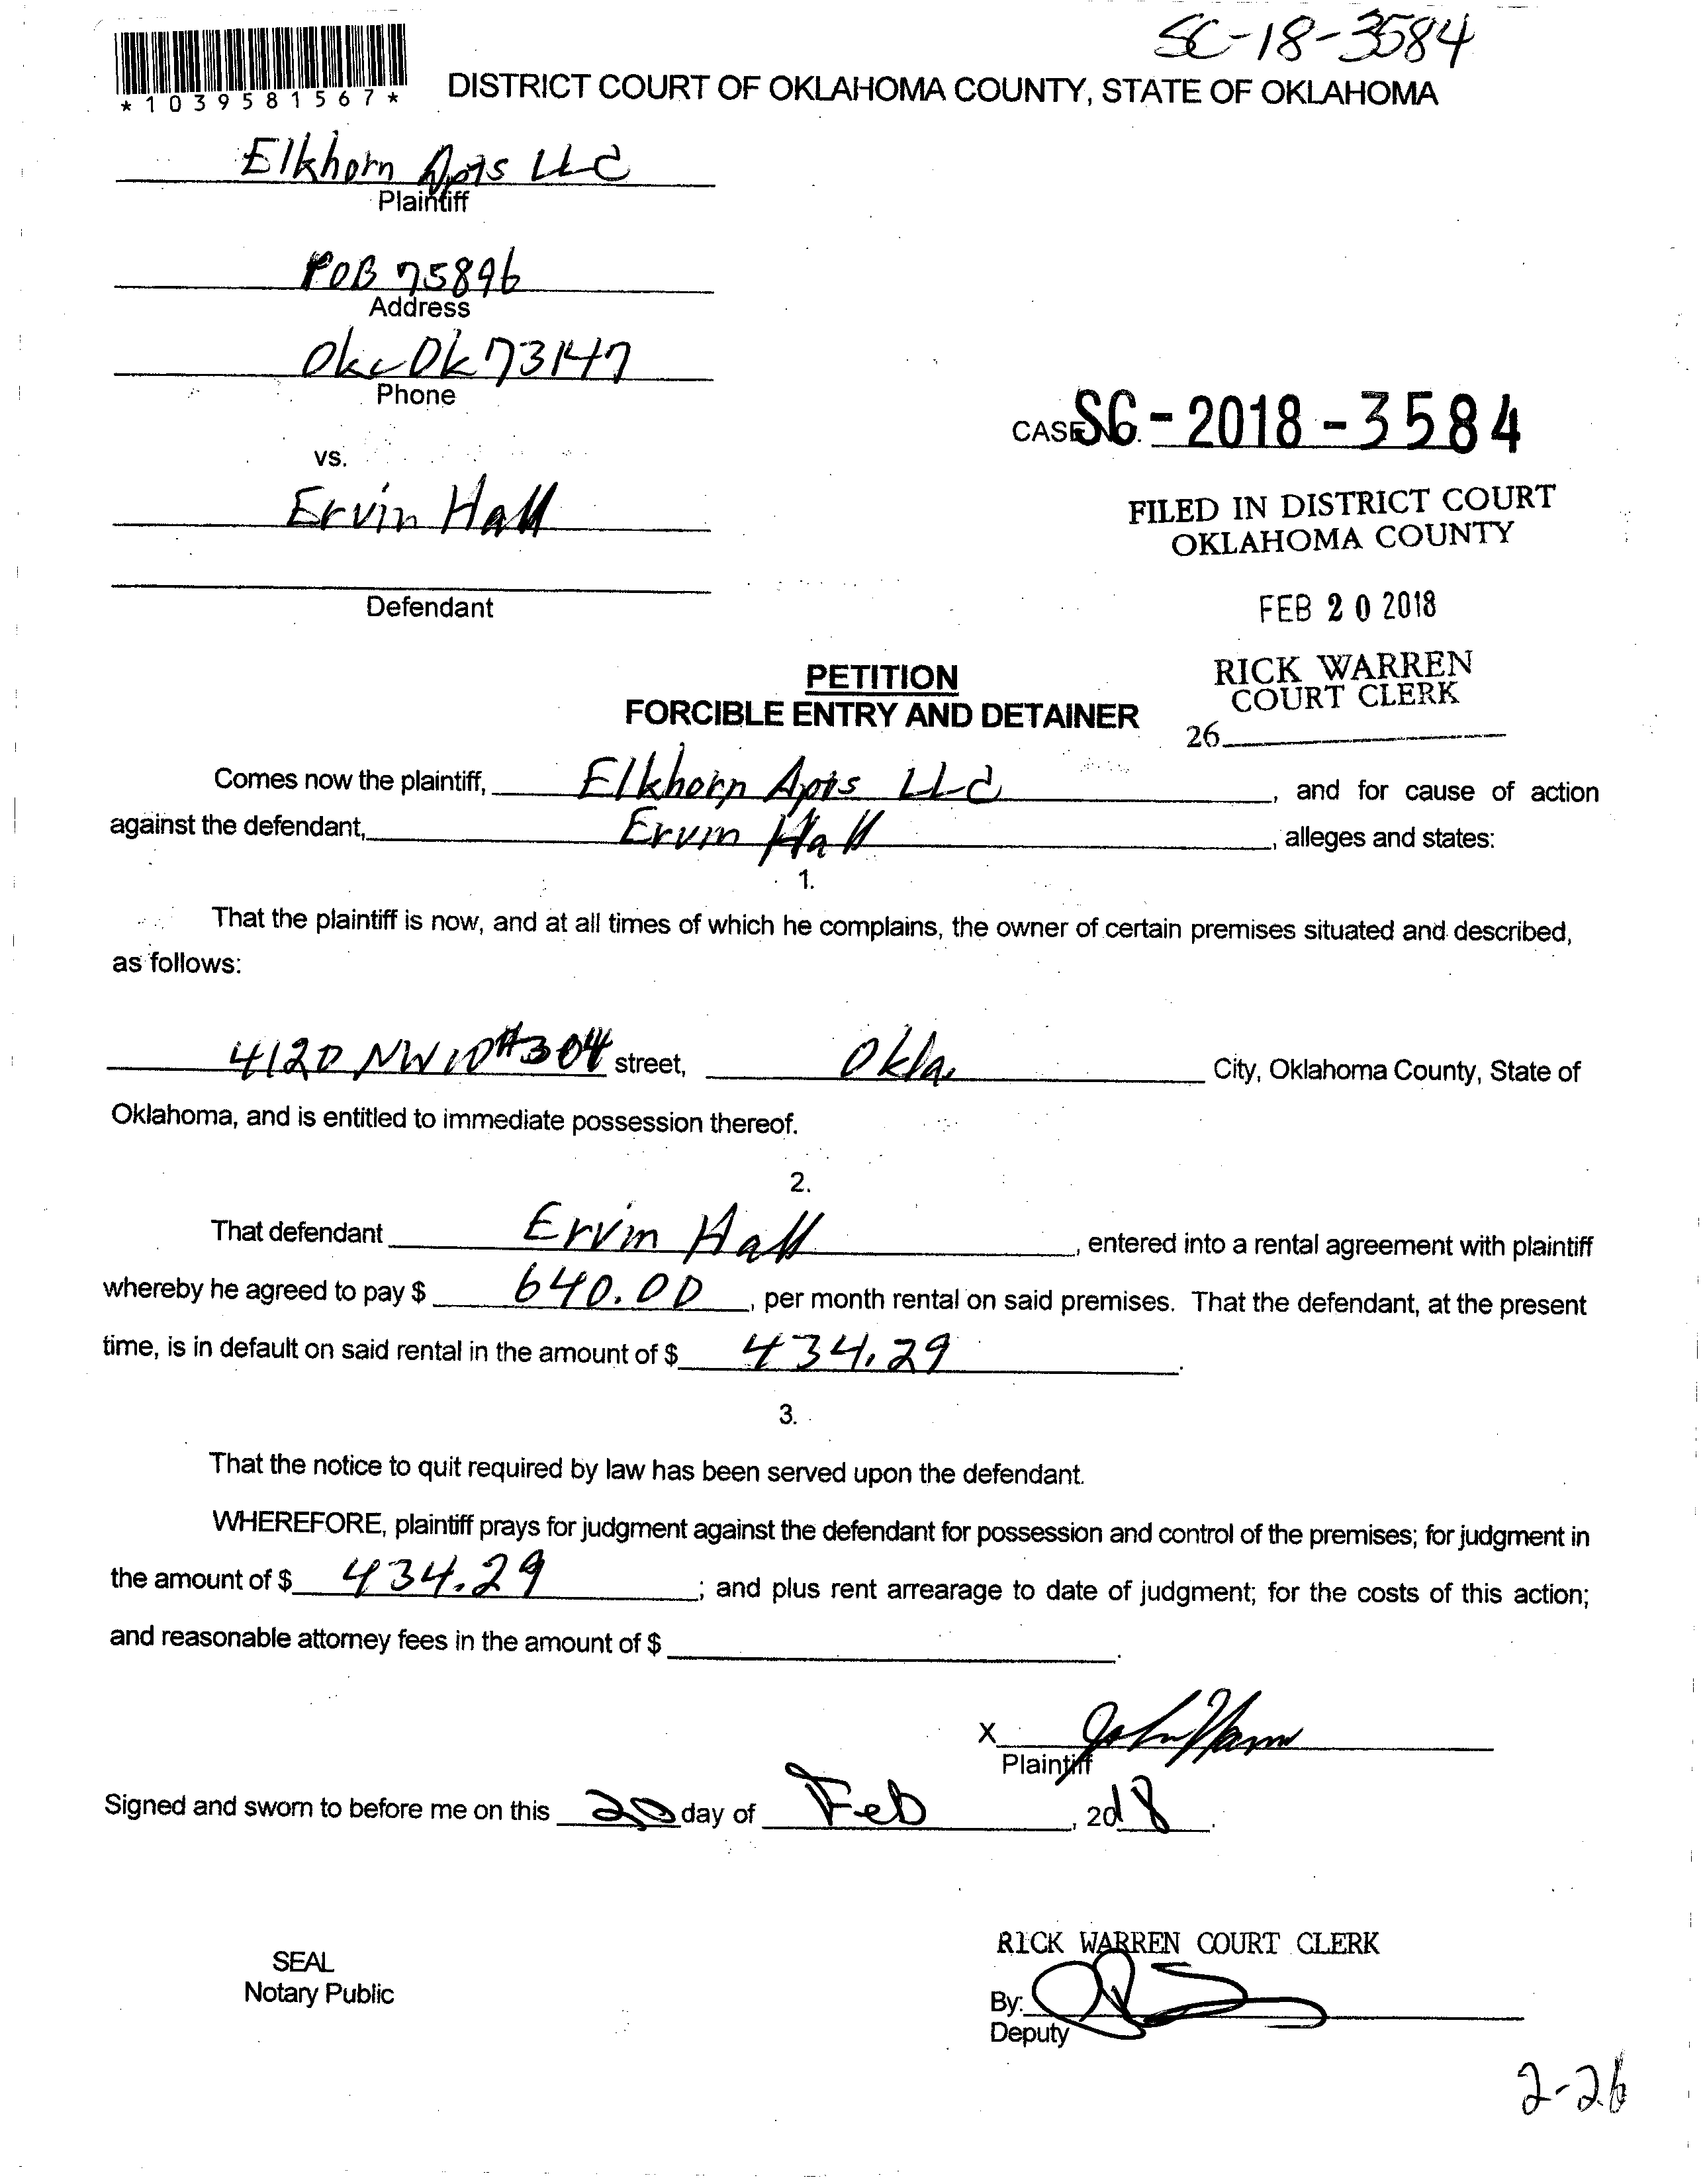 SC-18-3584
*1039581567*
DISTRICT COURT OF OKLAHOMA COUNTY, STATE OF OKLAHOMA
Elkhorn Apts LLC
Plaintiff
POB 75896
Address
Okc Ok 73147
Phone
CASE NO. SC-2018-3584
vs.
Ervin Hall
FILED IN DISTRICT COURT
OKLAHOMA COUNTY
Defendant
FEB 20 2018
PETITION
FORCIBLE ENTRY AND DETAINER
RICK WARREN
COURT CLERK
26
Comes now the plaintiff, Elkhorn Apts LLC, and for cause of action
against the defendant, Ervin Hall, alleges and states:
1.
That the plaintiff is now, and at all times of which he complains, the owner of certain premises situated and described,
as follows:
4120 NW 10 #304 street, Okla. City, Oklahoma County, State of
Oklahoma, and is entitled to immediate possession thereof.
2.
That defendant Ervin Hall, entered into a rental agreement with plaintiff
whereby he agreed to pay $ 640.00, per month rental on said premises. That the defendant, at the present
time, is in default on said rental in the amount of $ 434.29.
3.
That the notice to quit required by law has been served upon the defendant.
WHEREFORE, plaintiff prays for judgment against the defendant for possession and control of the premises; for judgment in
the amount of $ 434.29; and plus rent arrearage to date of judgment; for the costs of this action;
and reasonable attorney fees in the amount of $.
X
Plaintiff
Signed and sworn to before me on this 20 day of Feb, 2018.
RICK WARREN COURT CLERK
SEAL
Notary Public
By:
Deputy
2-26